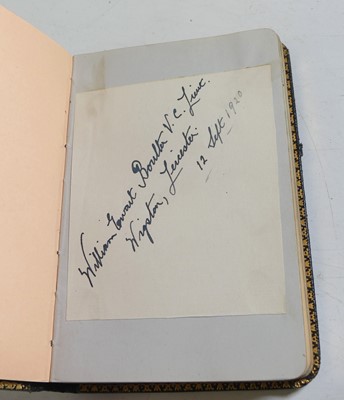 William Ewart Boulter V.C. Lieut.
Wigston, Leicester
12 Sept 1920